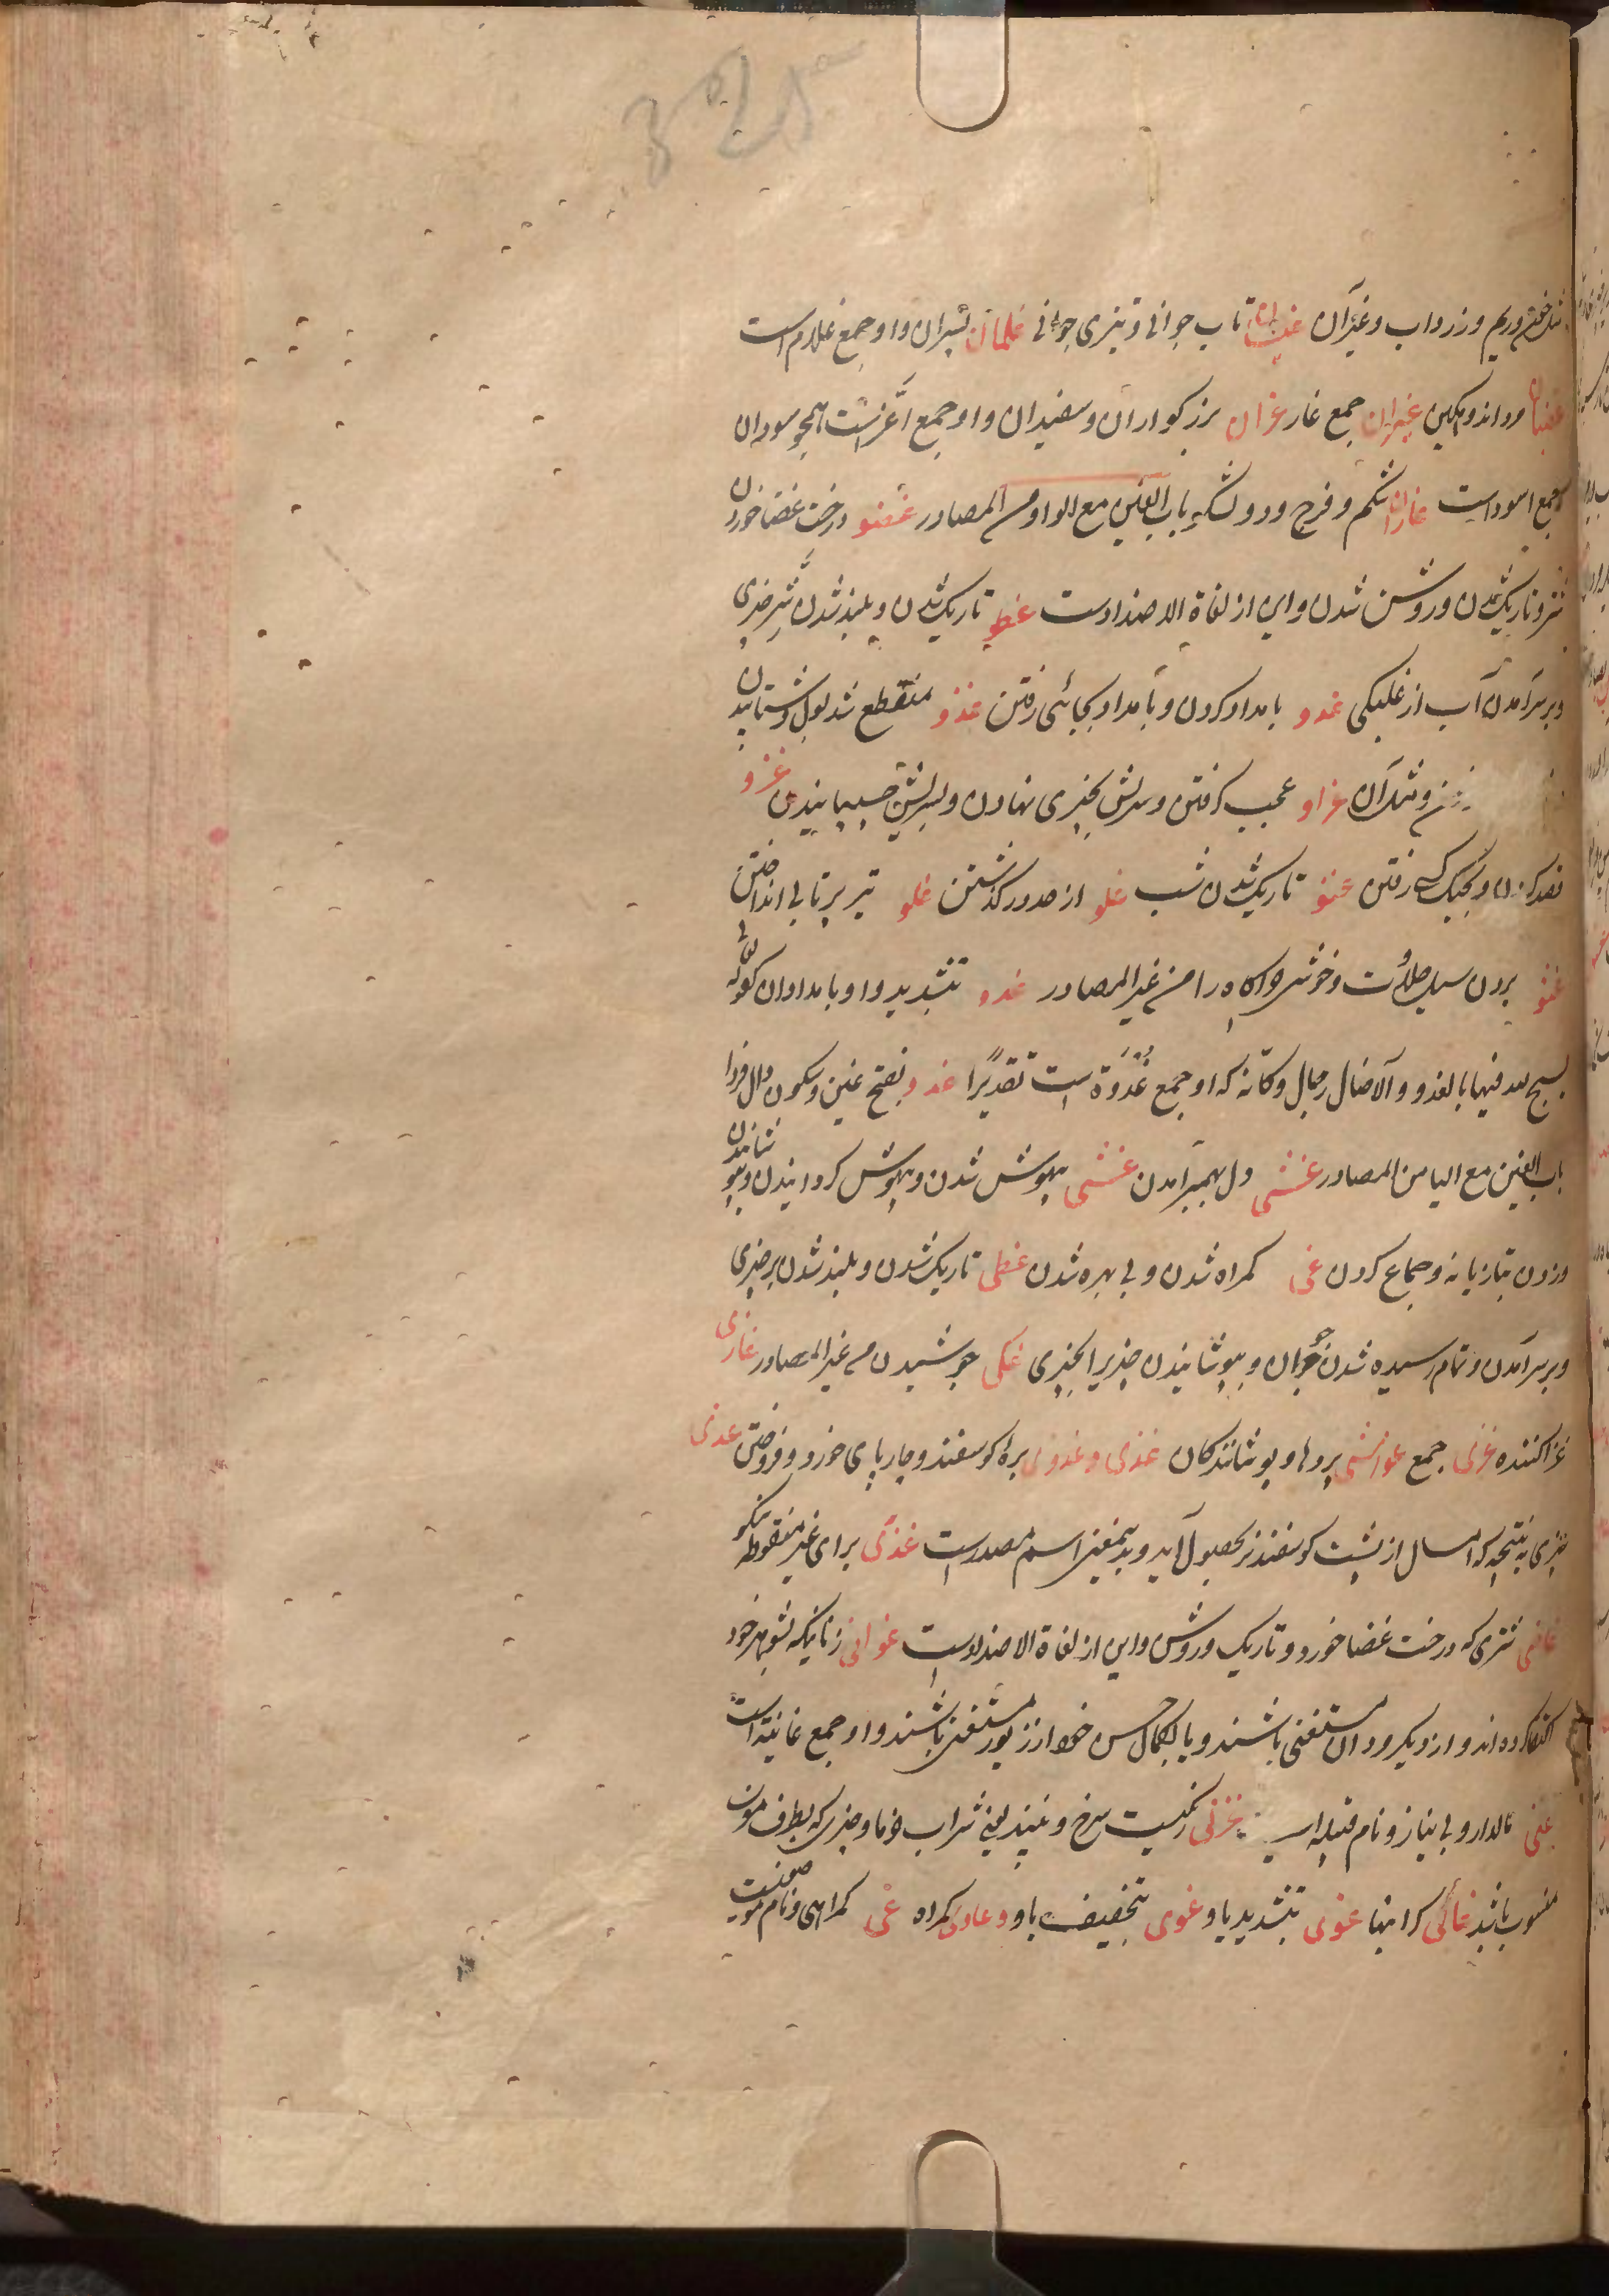 وریم و زرداب و غیر آن غیسان تاب جوانی و تیزی جوانی غلمان پسران و او جمع غلام است
غضبان مرد اندوهگین غیران جمع غار غران بزرکواران و سفیدان و او جمع اغر است همچو سودان
جمع اسود است غاران شکم و فرج و دو لشکر باب الغین مع الواو من المصادر غضو درخت غضا خوردن
شتر و تاریک شدن و روشن شدن و این از لغاة الاضداد است غطو تاریک شدن و بلند شدن بر چیزی
و بر سر آمدن آب از غلبکی غدو بامداد کردن و بامداد بجائی رفتن غذو منقطع شدن بول و شتابیدن
و مثل آن غراو عجب کرفتن و سریش بچیزی نهادن و بسریش چسپانیدن غزو
قصد کردن و بجنک کسی رفتن غسو تاریک شدن شب غلو از حد در کذشتن غلو تیر پرتابی انداختن
غثو بردن سیل حلاوت و خوشی کاه را من غیر المصادر غدو بتشدید واو بامدادان کقوله تعالی
یسبح له فیها بالغدو و الآصال رجال و کانه که او جمع غُدْوَة است تقدیرًا غدو بفتح غین و سکون دال فردا
باب الغین مع الیا من المصادر غشی دل بهم برآمدن غشی بیهوش شدن و بیهوش کردانیدن و پوشانیدن
و زدن بتازیانه و جماع کردن غی کمراه شدن و بی بهره شدن غطی تاریک شدن و بلند شدن بر چیزی
و بر سر آمدن و تمام رسیده شدن جوان و بپوشانیدن چیزیرا بچیزی غلی جوشیدن من غیر المصادر غازی
غزا کننده غزی جمع غواشی پردها و پوشانندکان غذی و غذوی بره کوسفند و چارپای خورد و فروختن غدی
چیزی به نتیجه که امسال از پشت کوسفند نر بحصول آید و بدین معنی اسم مصدر است غدی برای غیر منقوطه نیکو
غاضی شتری که درخت غضا خورد و تاریک و روشن و این از لغاة الاضداد است غوانی زنانیکه بشوهر خود
اکتفا کرده اند و از دیکر مردان مستغنی باشند و یا بکمال حسن خود از زیور مستغنی باشند و او جمع غانیة است
غنی مالدار و بی نیاز و نام قبیله رنکیست سرخ و نبیذ یعنی شراب خرما و چیزی که بطرف
منسوب باشد غالی کران بها غوی بتشدید یا و غوی بتخفیف یا و غاوی کمراه غی کمراهی و نام